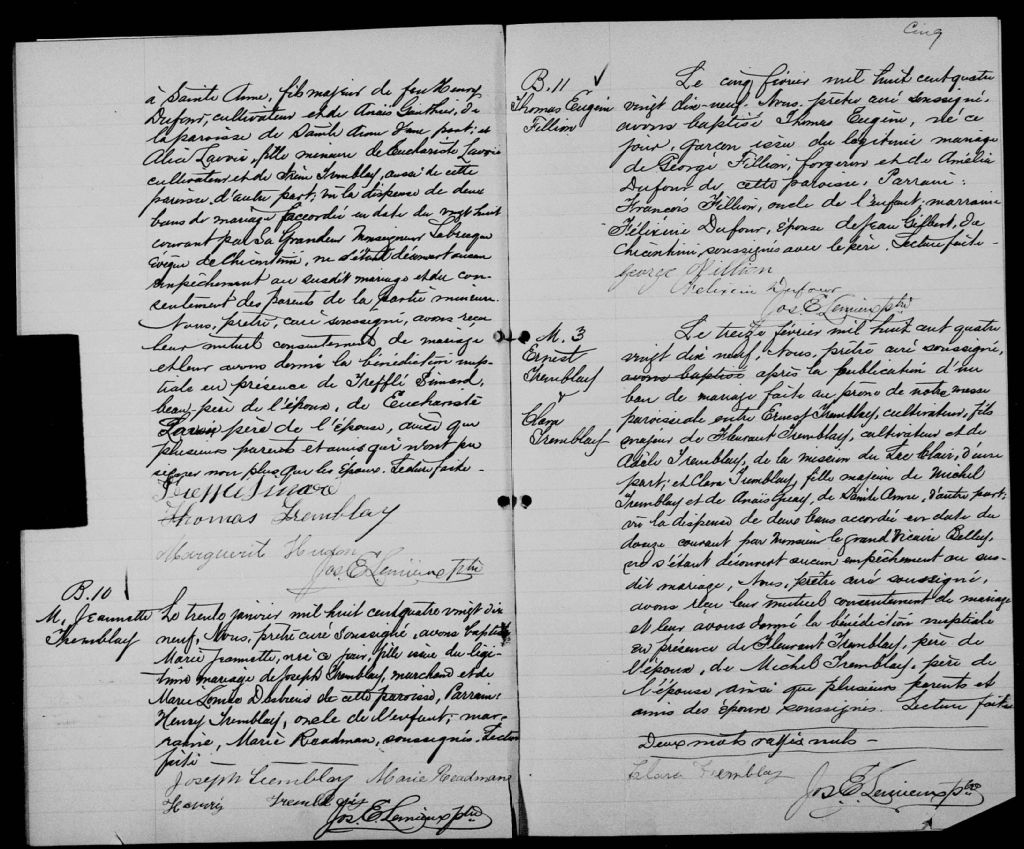 à Sainte Anne, fils majeur de feu Henry
Dufour, cultivateur et de Anaïs Gauthier, de
la paroisse de Sainte Anne d'une part; et
Alice Lavoie, fille mineure de Euchariste Lavoie
cultivateur et de Irène Tremblay, aussi de cette
paroisse, d'autre part; vu la dispense de deux
bans de mariage accordée en date du vingt huit
courant par Sa Grandeur Monseigneur Labrecque
évêque de Chicoutimi, ne s'étant découvert aucun
empêchement au susdit mariage et du con-
sentement des parents de la partie mineure.
Nous, prêtre, curé soussigné, avons reçu
leur mutuel consentement de mariage
et leur avons donné la bénédiction nup-
tiale en présence de Trefflé Simard,
beau-père de l'époux, de Euchariste
Lavoie père de l'épouse, ainsi que
plusieurs parents et amis qui n'ont pu
signer non plus que les époux. Lecture faite -
Treffle Simard
Thomas Tremblay
Marguerit Hudon
Jos. E. Lemieux ptre
B. 10
M. Jeannette
Tremblay
Le trente janvier mil huit cent quatre vingt dix
neuf, Nous, prêtre curé soussigné, avons baptisé
Marie Jeannette, née ce jour, fille issue du légi-
time mariage de Joseph Tremblay, marchand et de
Marie Louise Desbiens de cette paroisse, Parrain:
Henry Tremblay, oncle de l'enfant; mar-
raine, Marie Readman, soussignés. Lecture
faite -
Joseph Tremblay Marie Readman
Henery Tremblay
Jos. E. Lemieux ptre
Cinq
B. 11
Thomas Eugène
Fillion
Le cinq février mil huit cent quatre
vingt dix-neuf. Nous, prêtre curé soussigné,
avons baptisé Thomas Eugène, né ce
jour, garçon issu du légitime mariage
de George Fillion, forgeron et de Amélia
Dufour de cette paroisse. Parrain:
François Fillion, oncle de l'enfant; marraine
Félixine Dufour, épouse de Jean Gilbert, de
Chicoutimi, soussignés avec le père. Lecture faite -
George Fillion
Félixine Dufour
Jos. E. Lemieux ptre
M. 3
Ernest
Tremblay
&
Clara
Tremblay
Le treize février mil huit cent quatre
vingt dix neuf, Nous, prêtre curé soussigné,
avons baptisé après la publication d'un
ban de mariage faite au prône de notre messe
paroissiale entre Ernest Tremblay, cultivateur, fils
majeur de Fleurant Tremblay, cultivateur et de
Adèle Tremblay, de la mission du Lac Clair, d'une
part; et Clara Tremblay, fille majeure de Michel
Tremblay et de Anaïs Geay, de Sainte Anne, d'autre part;
vu la dispense de deux bans accordée en date du
douze courant par Monsieur le grand Vicaire Belley,
ne s'étant découvert aucun empêchement au sus-
dit mariage, Nous, prêtre curé soussigné,
avons reçu leur mutuel consentement de mariage
et leur avons donné la bénédiction nuptiale
en présence de Fleurant Tremblay, père de
l'époux, de Michel Tremblay, père de
l'épouse ainsi que plusieurs parents et
amis des époux soussignés. Lecture faite
Deux mots rayés nuls -
Clara Tremblay
Jos. E. Lemieux ptre